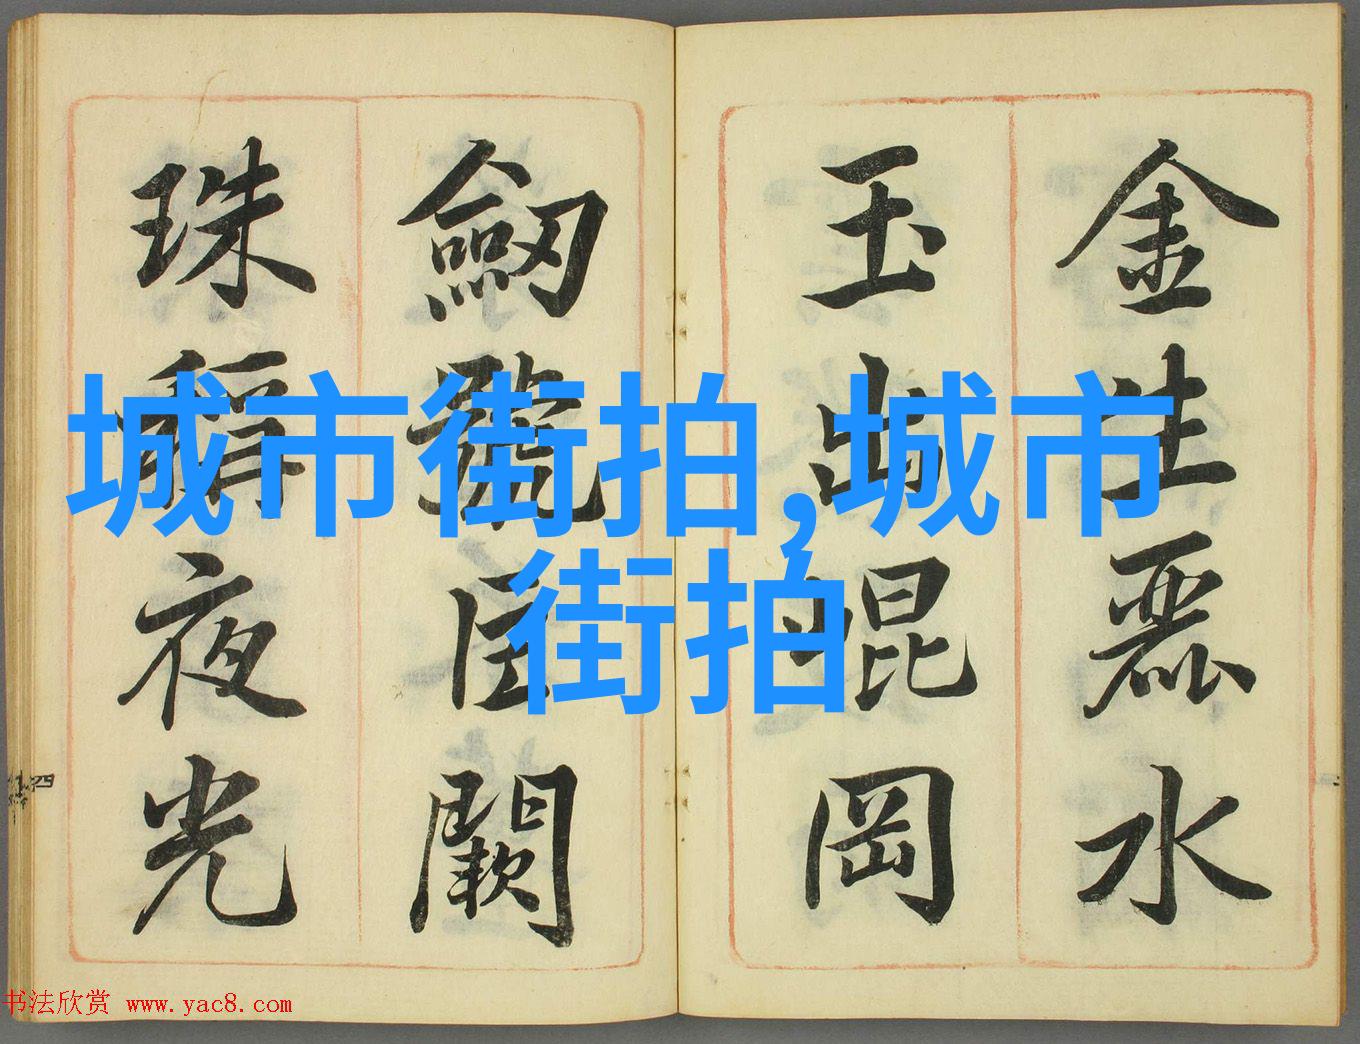 金生麗水
玉出崐岡
劒號巨闕
珠稱夜光
城市街拍,城市
街拍
书法欣赏 www.yac8.com